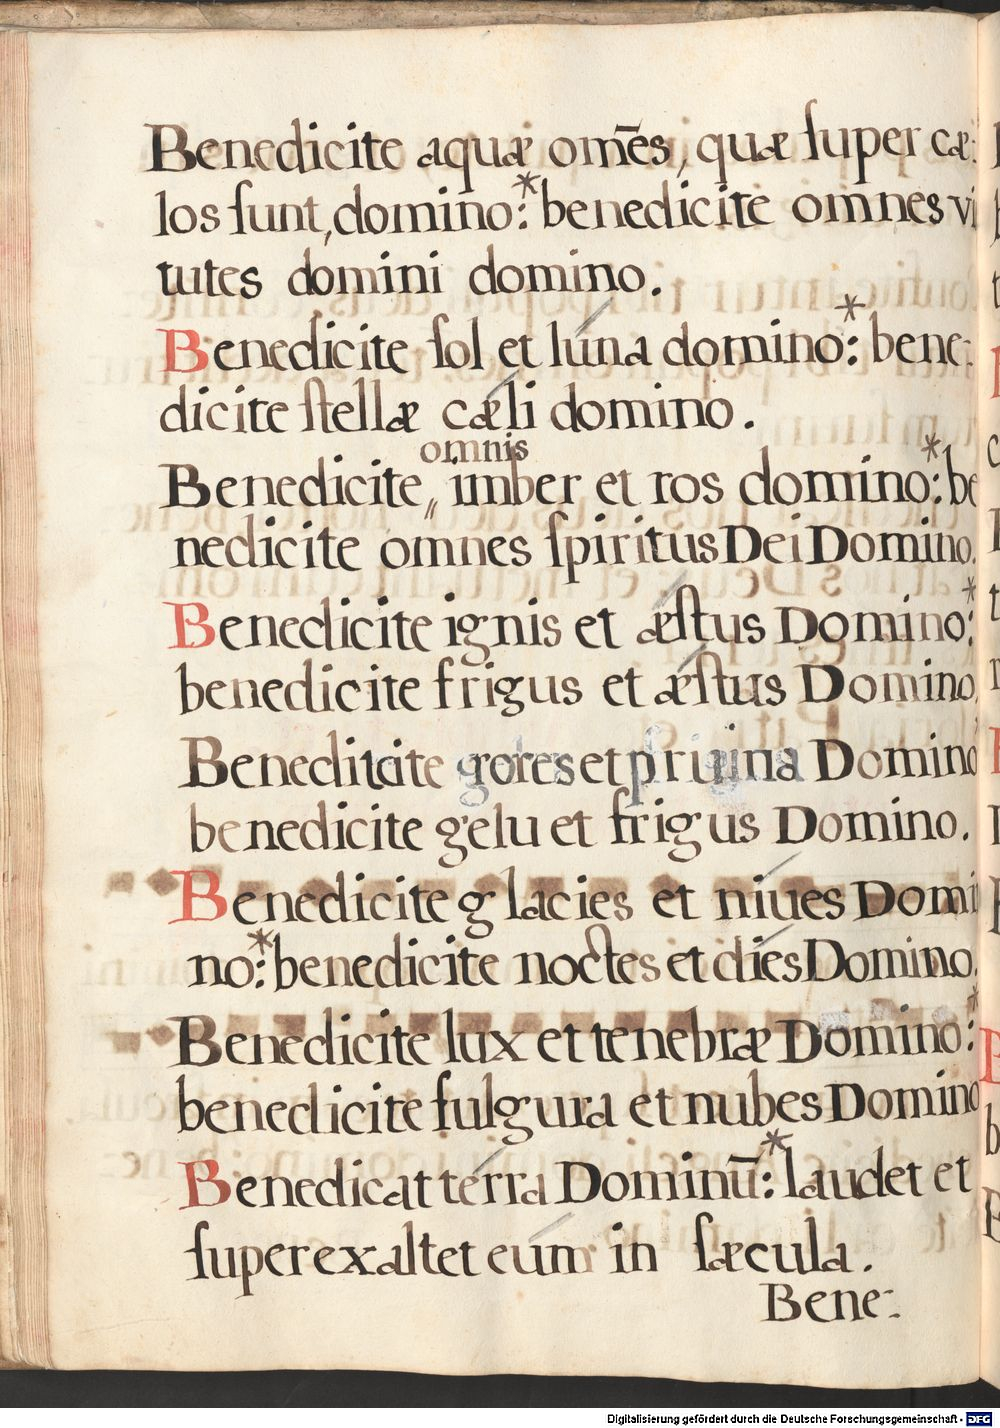 Benedicite aquæ om̄es, quæ ſuper cæ-
los ſunt, domino:* benedicite omnes vi
tutes domini domino.
Benedicite ſol et lúna domino:* bene-
dicite ſtellæ cǽli domino.
omnis
Benedicite,, imber et ros domino:* be
nedicite omnes ſpiritus Dei Domino.
Benedicite ignis et ǽſtus Domino:*
benedicite frigus et ǽſtus Domino,
Benedicite rores et pruina Domino
benedicite gelu et frigus Domino.
Benedicite glacies et níues Domi
no:* benedicite noctes et díes Domino.
Benedicite lux et tenebræ Domino:*
benedicite fulgura et nubes Domino
Benedicat térra Dominū:* laudet et
ſuperexaltet eúm in ſæcula.
Bene-
Digitalisierung gefördert durch die Deutsche Forschungsgemeinschaft - DFG